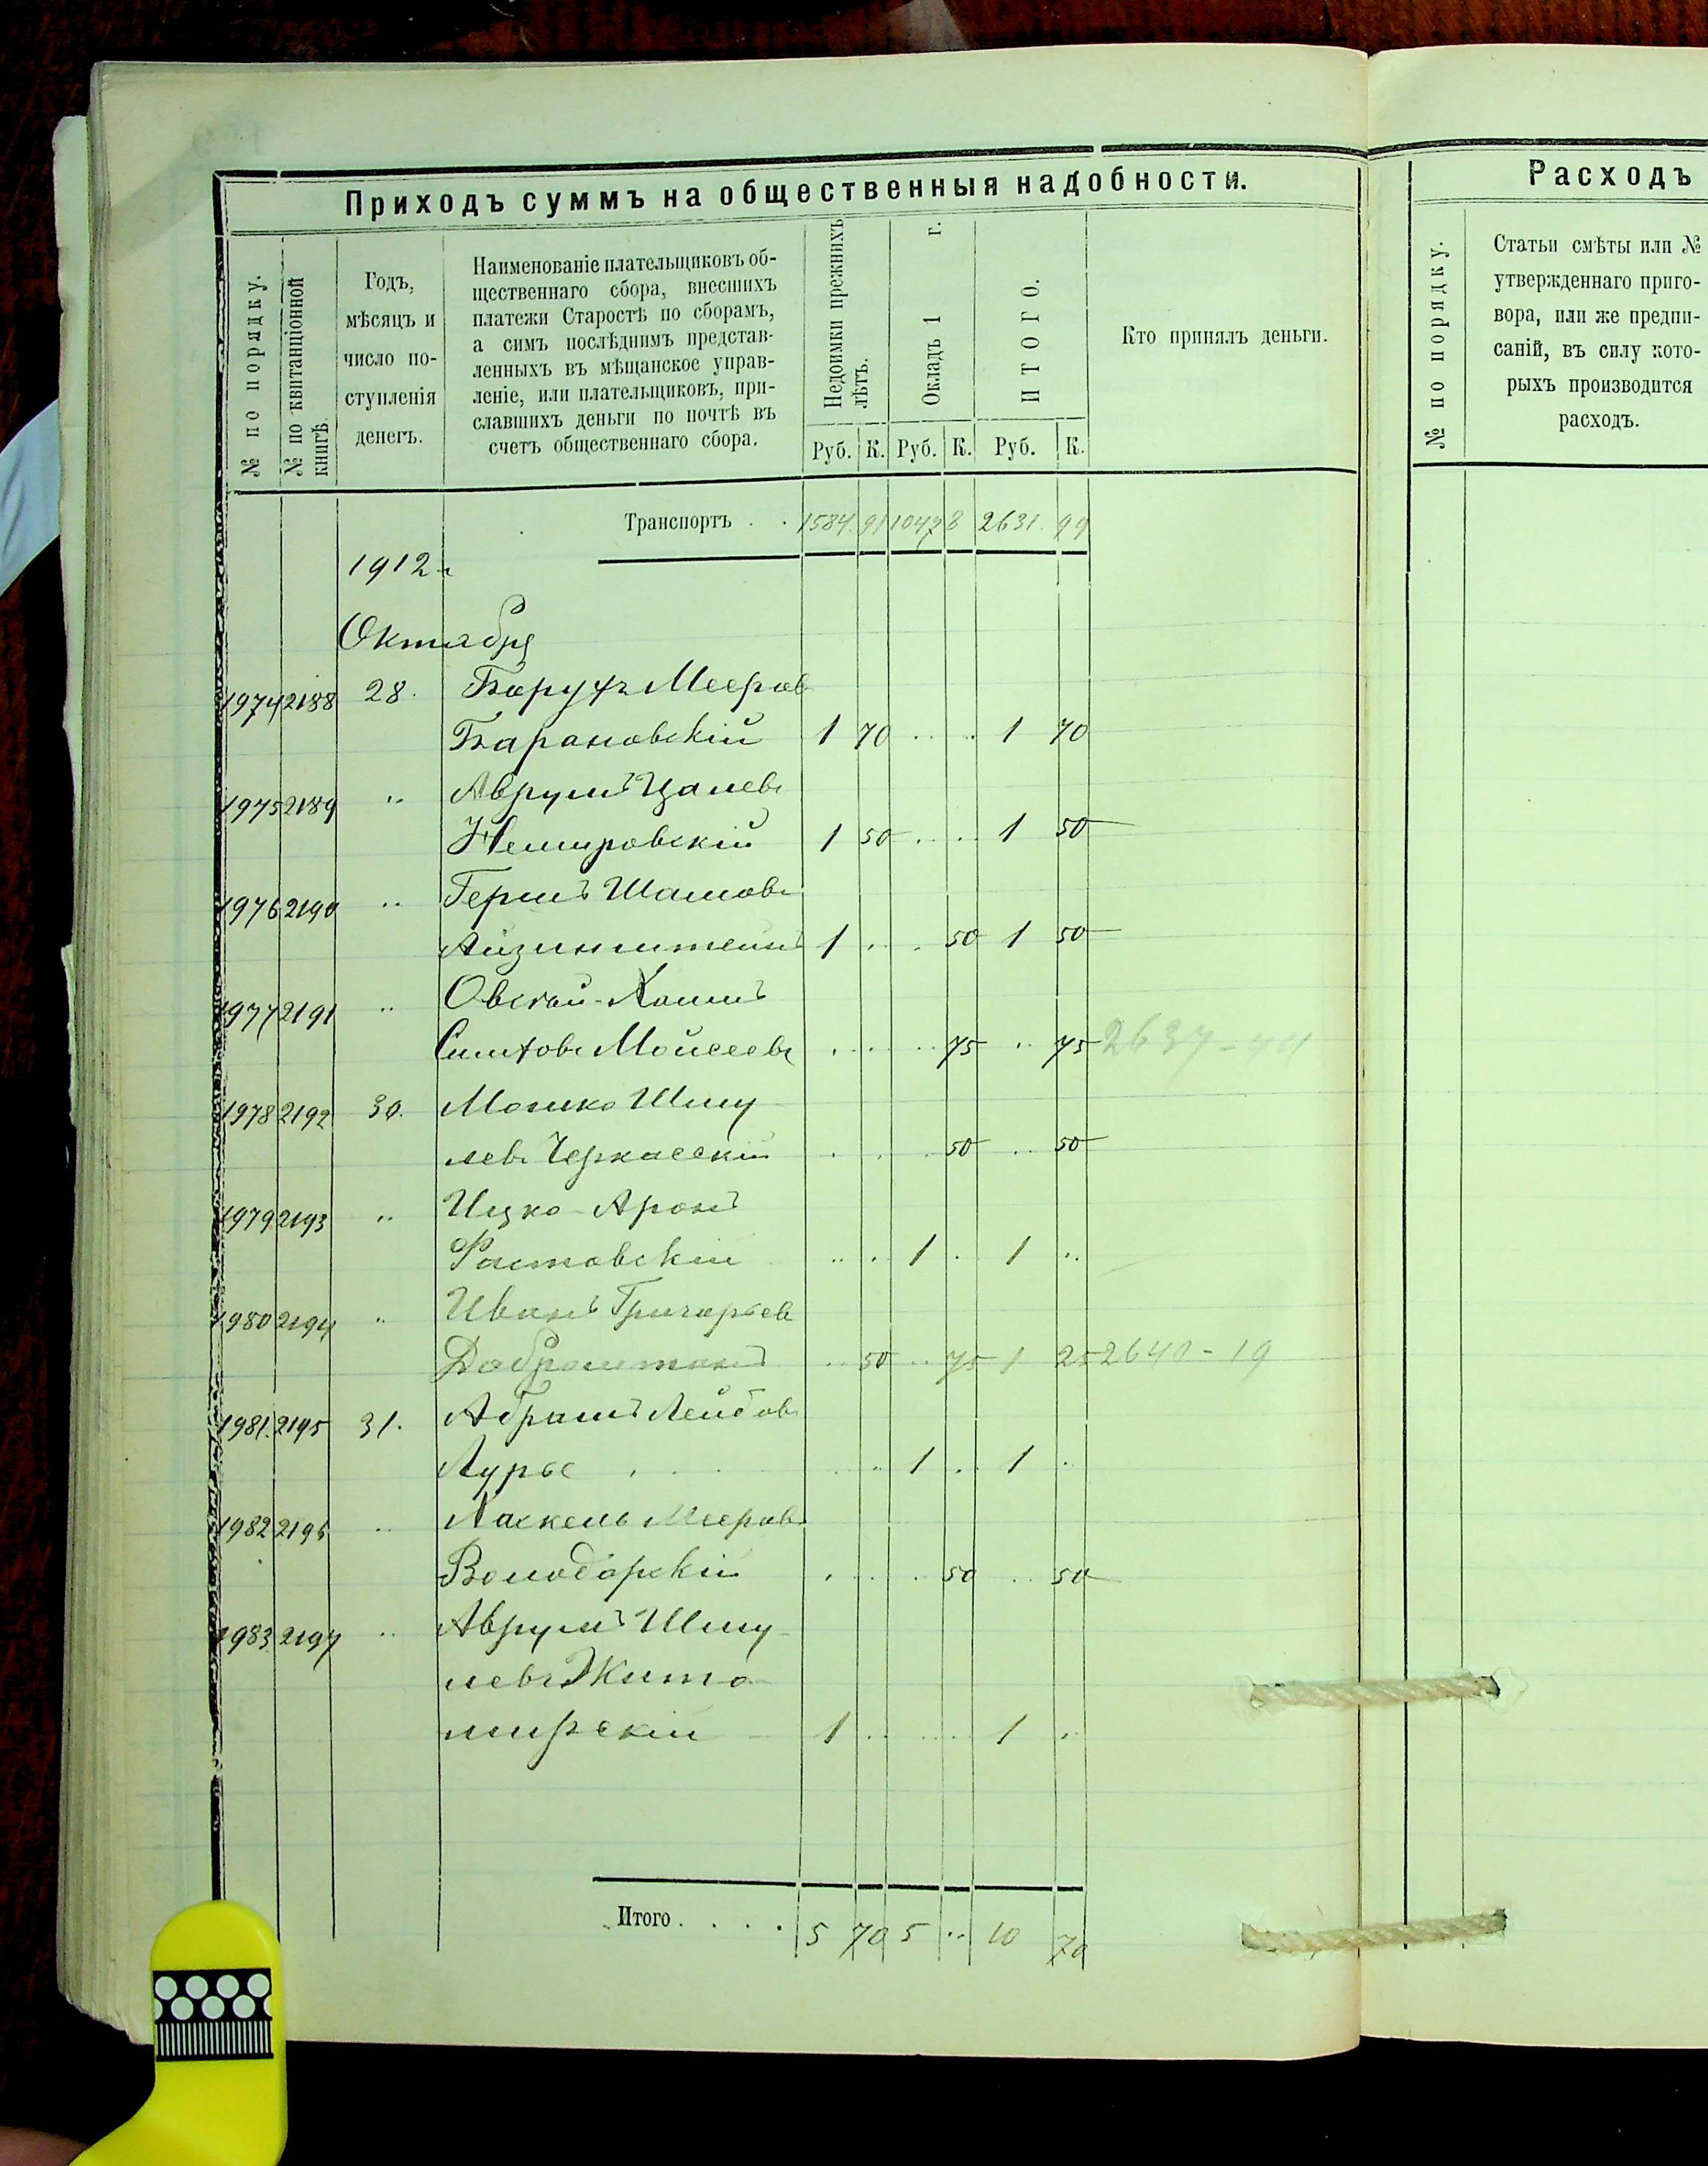 Приходъ суммъ на общественныя надобности.
№ по порядку.
№ по квитанціонной
книгѣ.
Годъ,
мѣсяцъ и
число по-
ступленія
денегъ.
Наименованіе плательщиковъ об-
щественнаго сбора, внесшихъ
платежи Старостѣ по сборамъ,
а симъ послѣднимъ представ-
ленныхъ въ мѣщанское управ-
леніе, или плательщиковъ, при-
славшихъ деньги по почтѣ въ
счетъ общественнаго сбора.
Недоимки прежнихъ
лѣтъ.
Окладъ 1 г.
ИТОГО.
Руб. К. Руб. К. Руб. К.
Кто принялъ деньги.
Транспортъ . . 1584 91 1047 8 2631 99
1912 г
Октября
1974 2188 28. Борухъ Мееров
Барановскій 1 70 . . . . 1 70
1975 2189 " Аврумъ Цалевъ
Немировскій 1 50 . . . . 1 50
1976 2190 " Гершъ
Айзинштейнъ 1 . . 50 1 50
1977 2191 "
Моисеевъ . . . . 75 .. 75
1978 2192 30. Мошко Шму
левъ Черкасскій . . . 50 .. 50
1979 2193 " Ицко-Аронъ
Растовскій .. . 1 . 1 ..
1980 2194 " Иванъ Григорьев
.. 50 .. 75 1 25 2640 - 19
1981. 2195 31. Абрамъ Лейбов
Лурье . . . .. 1 .. 1 .
1982 2196 " Мееров
Володарскій . . . . 50 .. 50
1983 2197 " Аврумъ Шму-
левъ Жито-
мирскій 1 .. . . . 1 ..
Итого . . . . 5 70 5 .. 10 70
Расходъ
№ по порядку.
Статьи смѣты или №
утвержденнаго приго-
вора, или же предпи-
саній, въ силу кото-
рыхъ производится
расходъ.